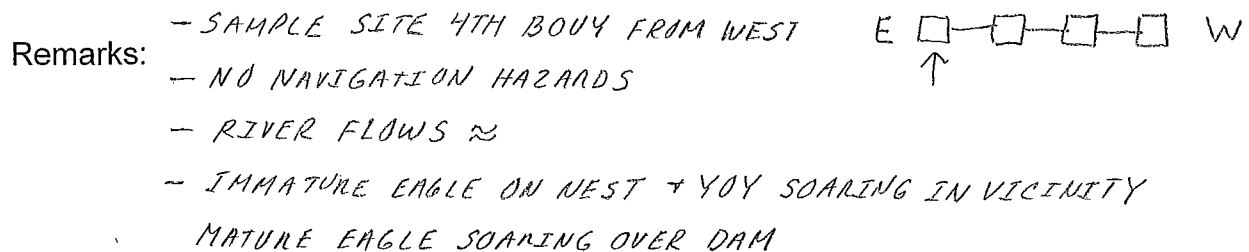 Remarks:
- SAMPLE SITE 4TH BOUY FROM WEST
E W
- NO NAVIGATION HAZARDS
- RIVER FLOWS ≈
- IMMATURE EAGLE ON NEST + YOY SOARING IN VICINITY
MATURE EAGLE SOARING OVER DAM